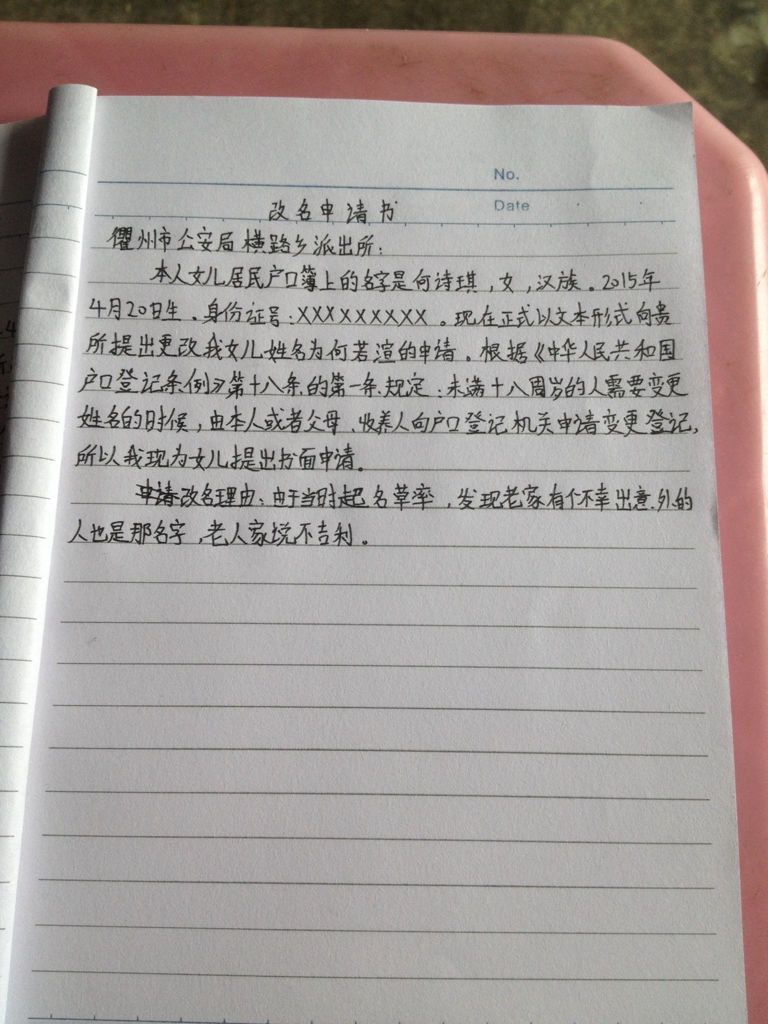 No.
Date
改名申请书
衢州市公安局横路乡派出所:
本人女儿居民户口簿上的名字是何诗琪,女,汉族。2015年
4月20日生.身份证号:XXXXXXXXX。现在正式以文本形式向贵
所提出更改我女儿姓名为何若渲的申请。根据《中华人民共和国
户口登记条例》第十八条的第一条规定:未满十八周岁的人需要变更
姓名的时候,由本人或者父母、收养人向户口登记机关申请变更登记,
所以我现为女儿提出书面申请。
申请改名理由:由于当时起名草率,发现老家有个不幸出意外的
人也是那名字,老人家说不吉利。